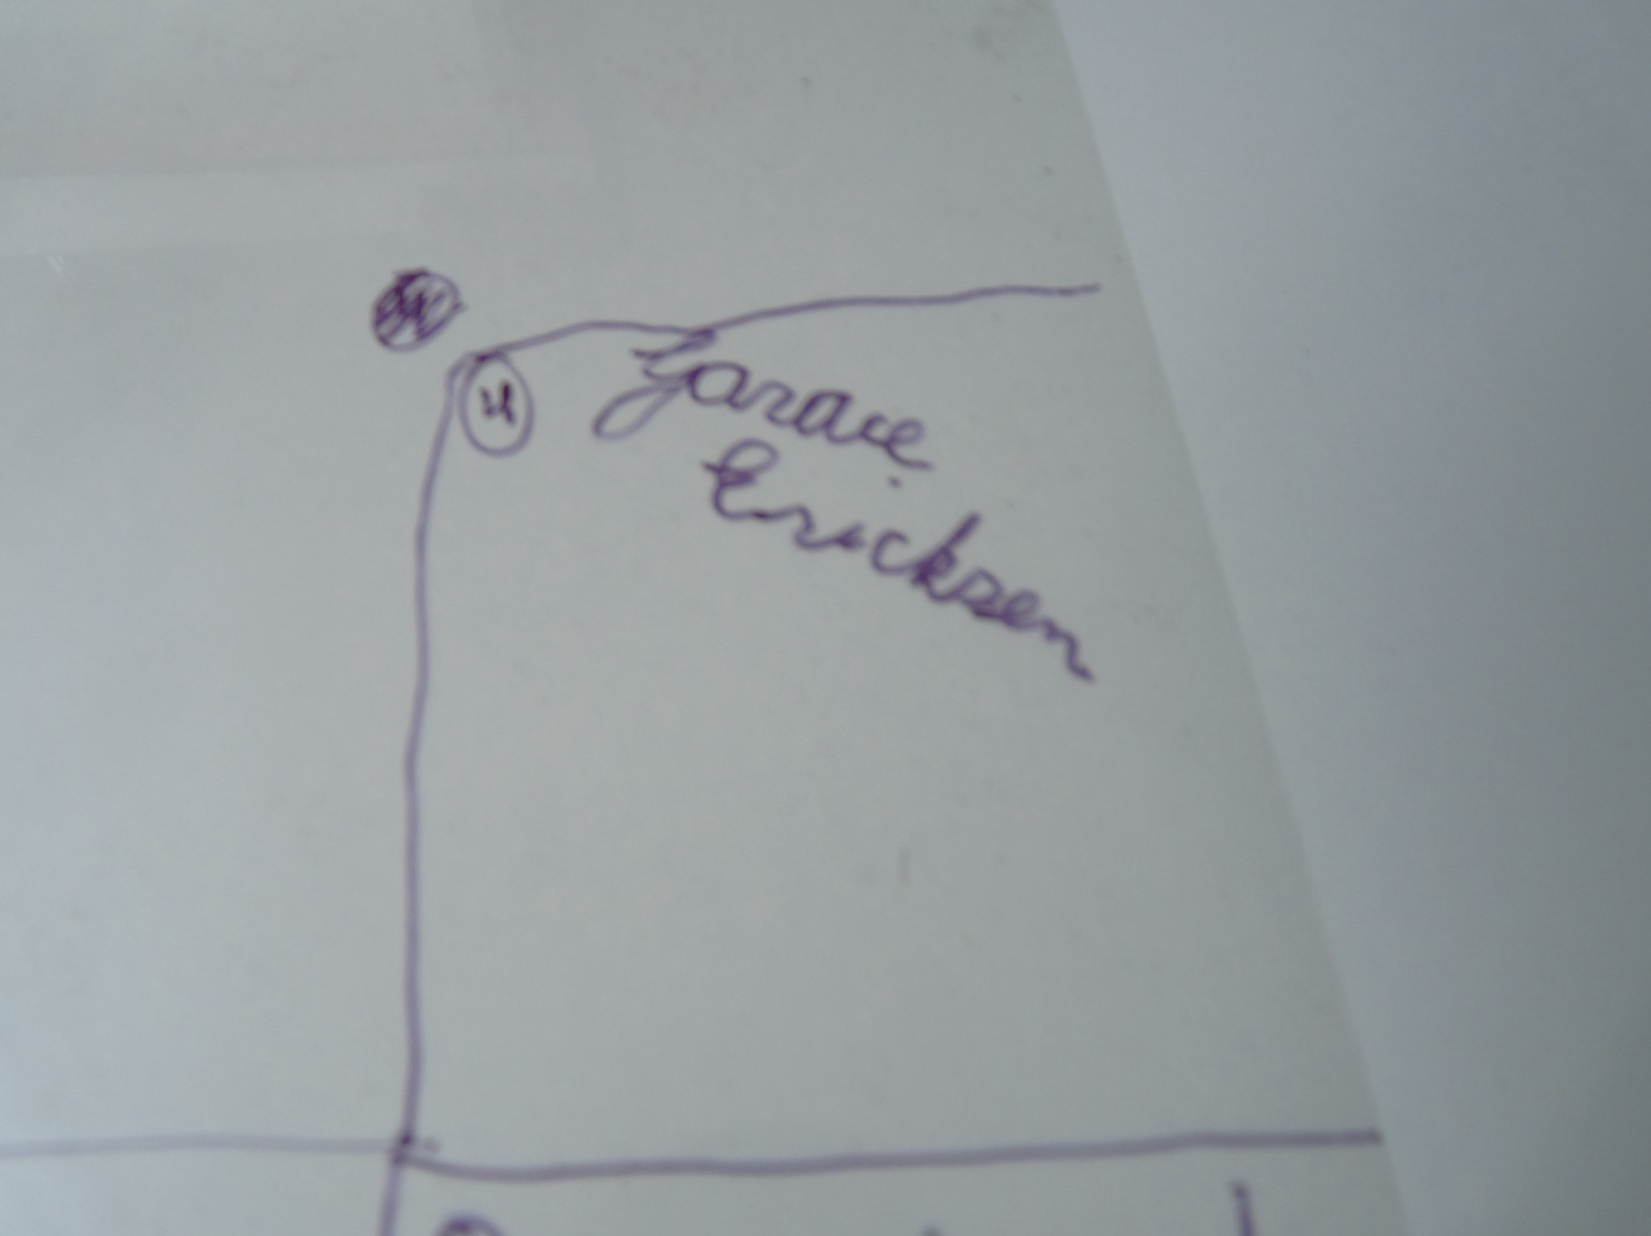 4
Zarace
Ericksen